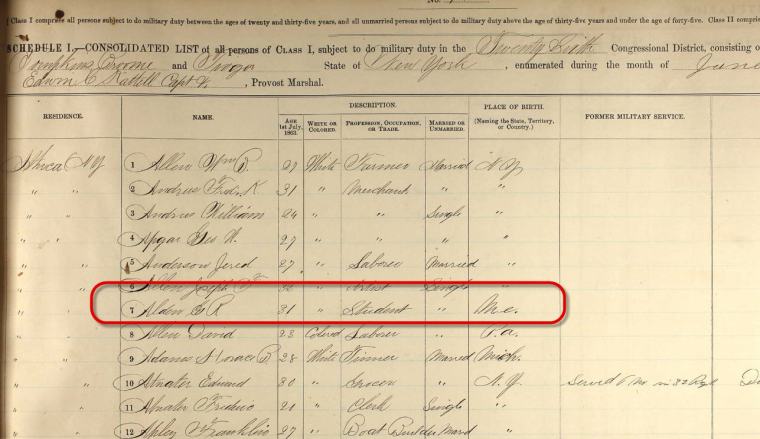 Class I comprises all persons subject to military duty between the ages of twenty and thirty-five years, and all unmarried persons subject to military duty above the age of thirty-five years and under the age of forty-five. Class II
SCHEDULE I.—CONSOLIDATED LIST of all persons of CLASS I, subject to do military duty in the Twenty Sixth Congressional District, consisting of
Tompkins Broome and Tioga State of New York, enumerated during the month of June
Edwin C Kattell Capt &, Provost Marshal.
RESIDENCE. NAME. DESCRIPTION. PLACE OF BIRTH. FORMER MILITARY SERVICE.
AGE 1st July, 1863. WHITE OR COLORED. PROFESSION, OCCUPATION, OR TRADE. MARRIED OR UNMARRIED. (Naming the State, Territory, or Country.)
Ithica N Y 1 Allen Wm B. 27 White Farmer Married N Y
" " 2 Andrus Fredr. K 31 " Merchant " "
" " 3 Andrus William 24 " " Single "
" " 4 Apgar Geo W. 27 " " " "
" " 5 Anderson Jered 27 " Laborer Married "
6 Allen Joseph F 30 " Artist Single
7 Alden G R 31 " Student " Me.
" " 8 Allen David 23 Colored Laborer " Pa.
" " 9 Adams Horace B. 28 White Tinner Married Mich.
" " 10 Atwater Edmund 30 " Grocer " N.Y. Served 6 Mo in 32 Regt
" " 11 Atwater Frederic 21 " Clerk Single "
12 Apley Franklin 27 " Boat Builder Mard "